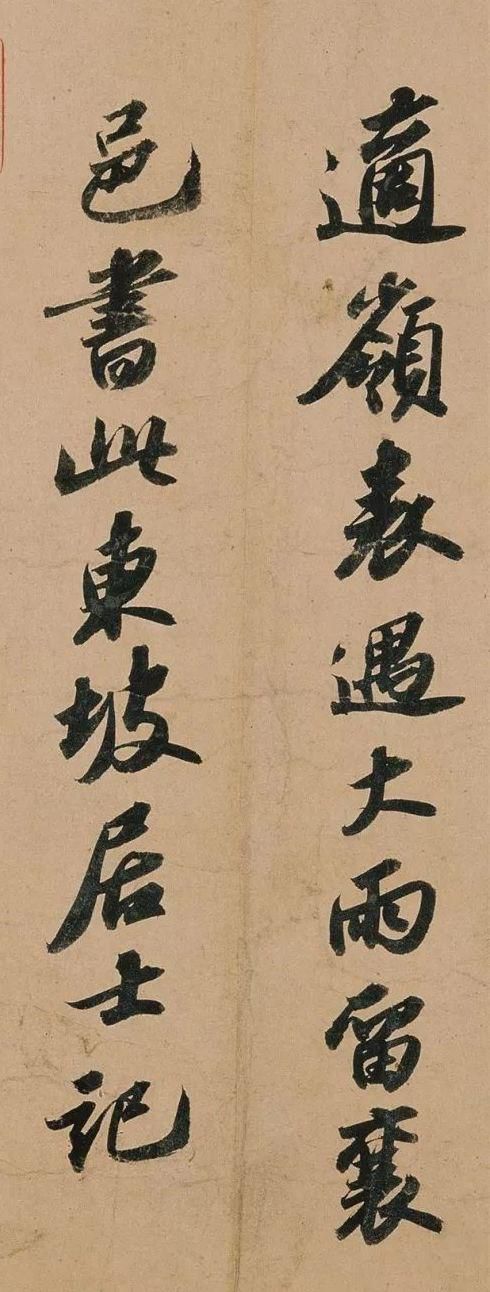 適嶺表遇大雨留襄
邑書此東坡居士記